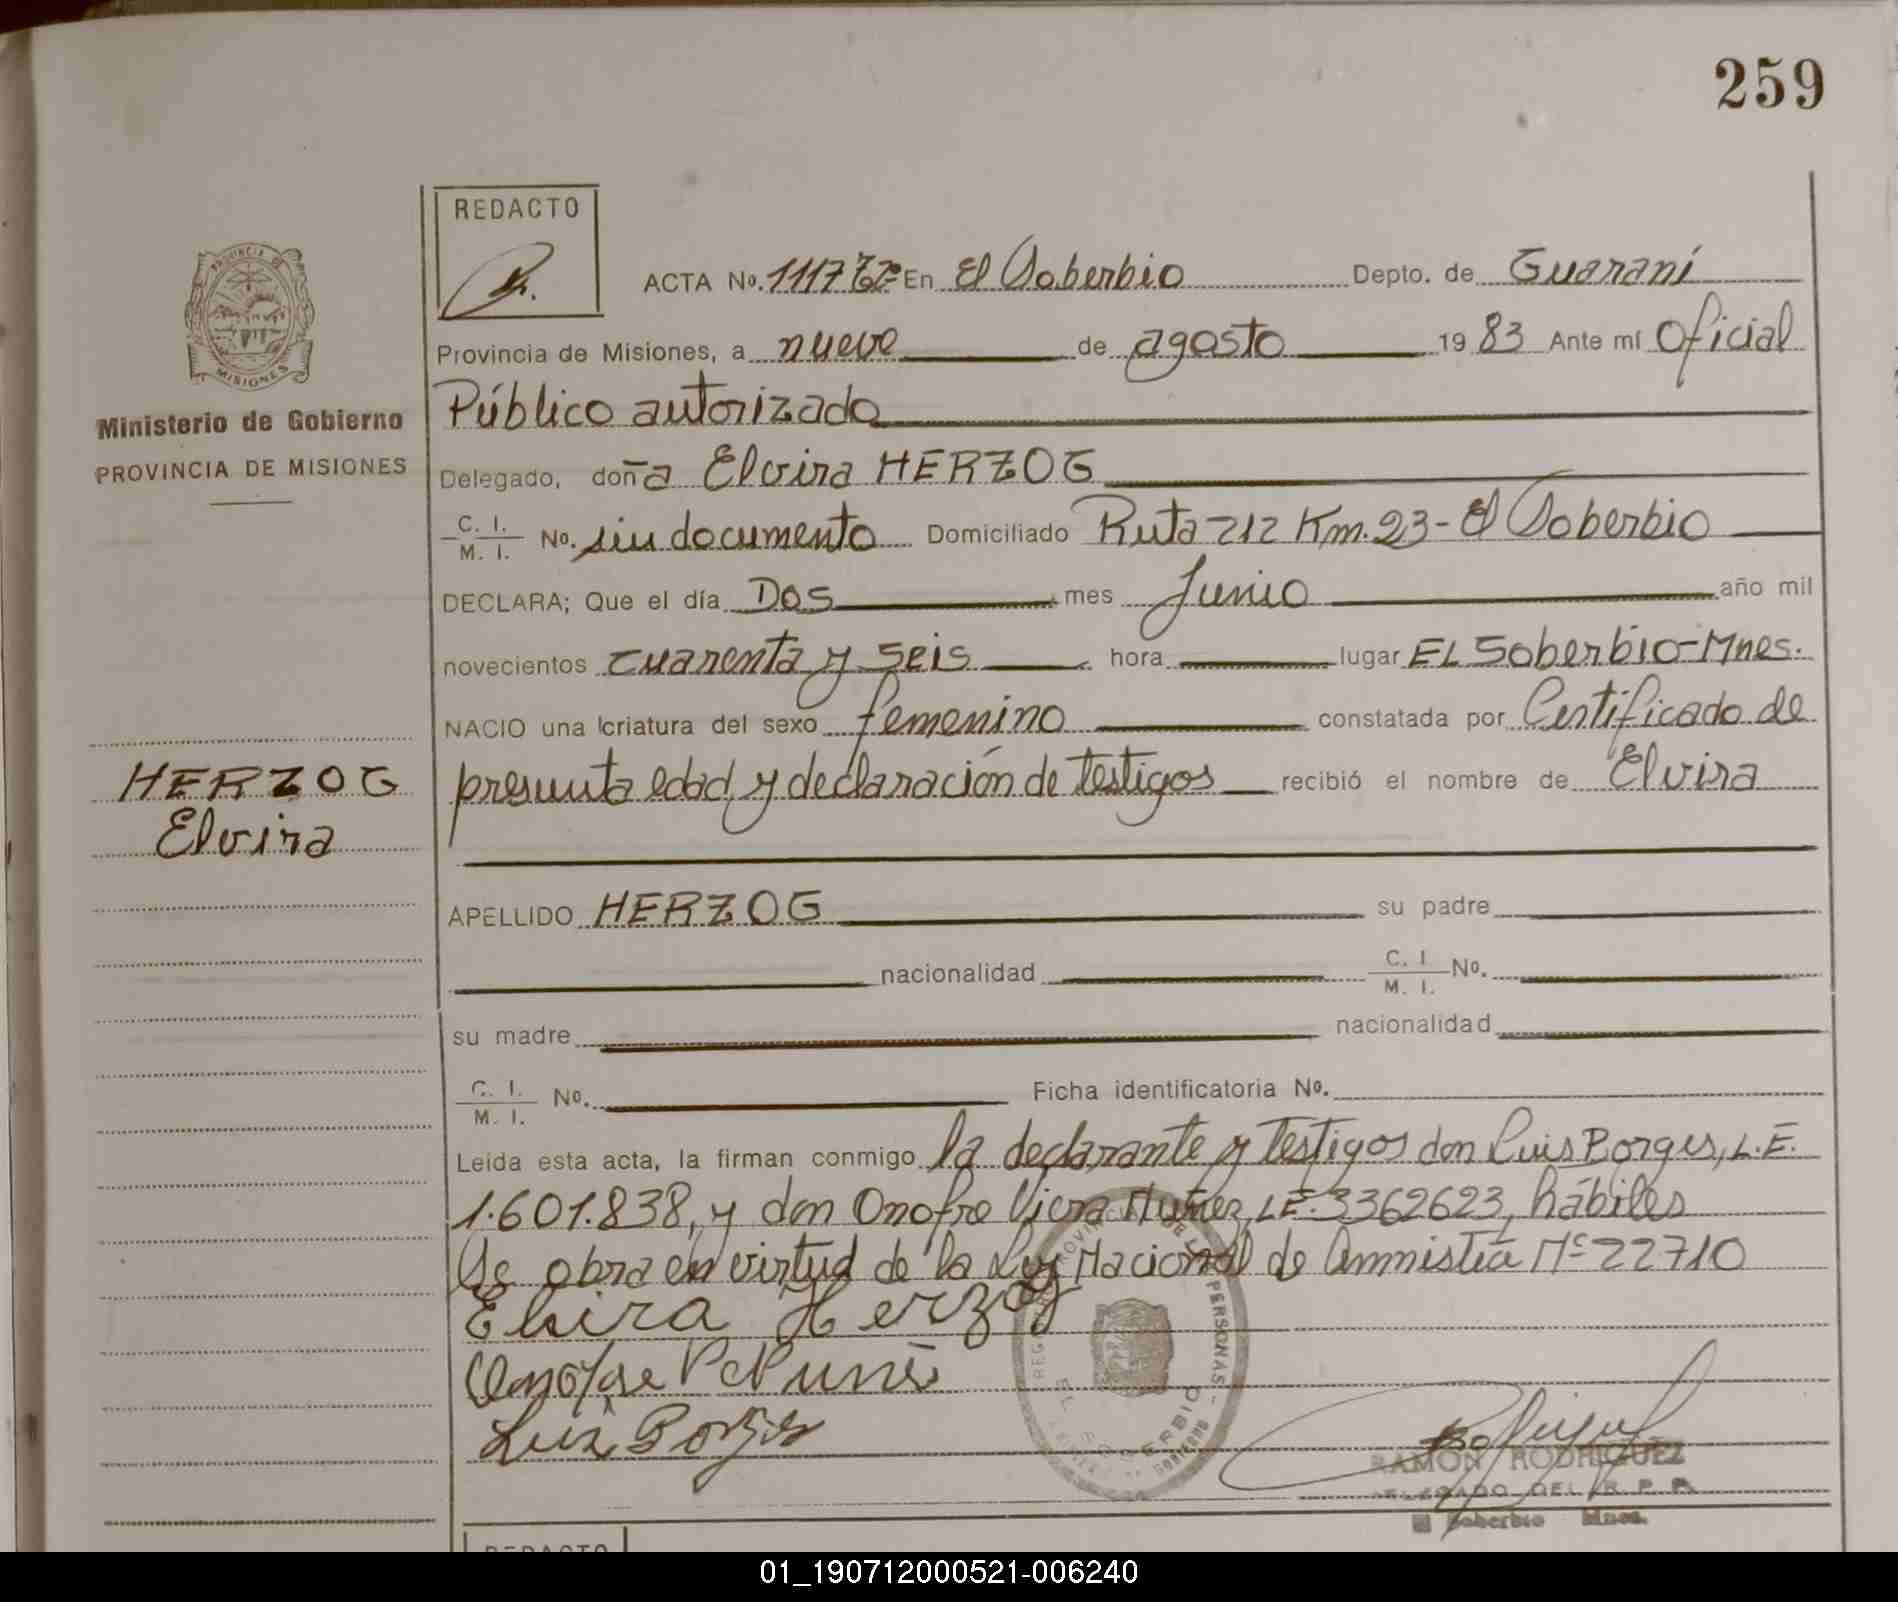 259
REDACTO
PROVINCIA DE
MISIONES
Ministerio de Gobierno
PROVINCIA DE MISIONES
HERZOG
Elvira
ACTA No. En El Soberbio Depto. de Guaraní
Provincia de Misiones, a nueve de agosto 19 83 Ante mí Oficial
Público autorizado
Delegado, doña Elvira HERZOG
C. I. M. I. No. sin documento Domiciliado Ruta 212 Km. 23 - El Soberbio
DECLARA; Que el día Dos mes Junio año mil
novecientos cuarenta y seis hora lugar EL Soberbio-Mnes.
NACIO una criatura del sexo femenino constatada por Certificado de
presunta edad y declaración de testigos recibió el nombre de Elvira
APELLIDO HERZOG su padre
nacionalidad C. I. M. I. No.
su madre nacionalidad
C. I. M. I. No. Ficha identificatoria No.
Leída esta acta, la firman conmigo la declarante y testigos don Luis Borges, L.E.
1.601.838, y don Onofre Viera Nuñez, LE. 3362623, hábiles
Se obra en virtud de la Ley Nacional de Amnistía Nº 22710
Elvira Herzog
Luis Borges
PERSONAS
EL SOBERBIO
RAMON RODRIGUEZ
DELEGADO DEL R. P. P.
El Soberbio Mnes.
REDACTO
01_190712000521-006240